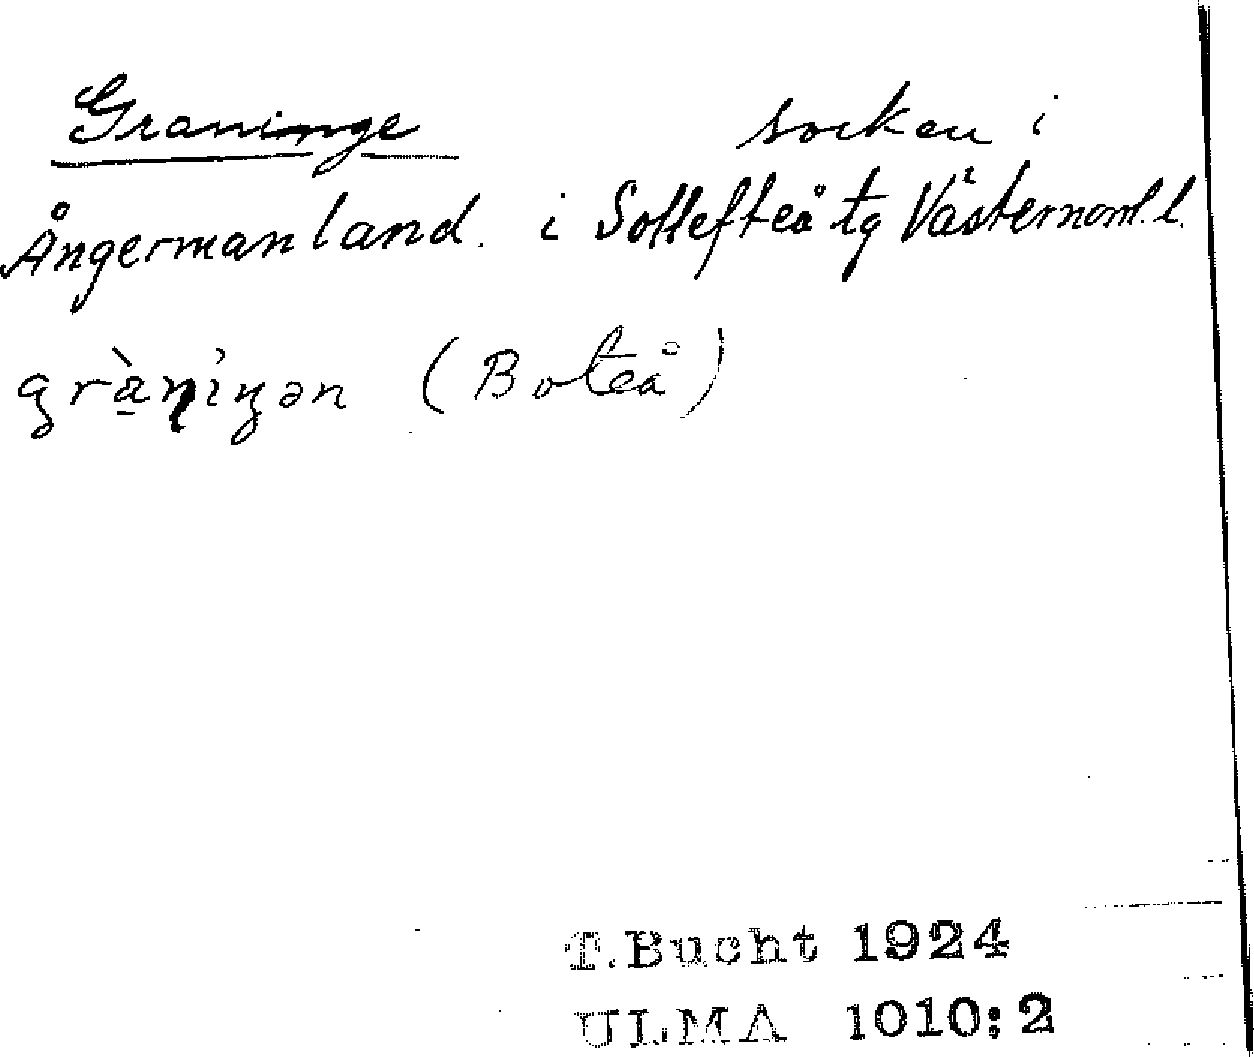 Graninge socken i
Ångermanland. i Sollefteå tg Västernorrl. l.
gràniŋən (Boteå)
T. Bucht 1924
ULMA 1010:2